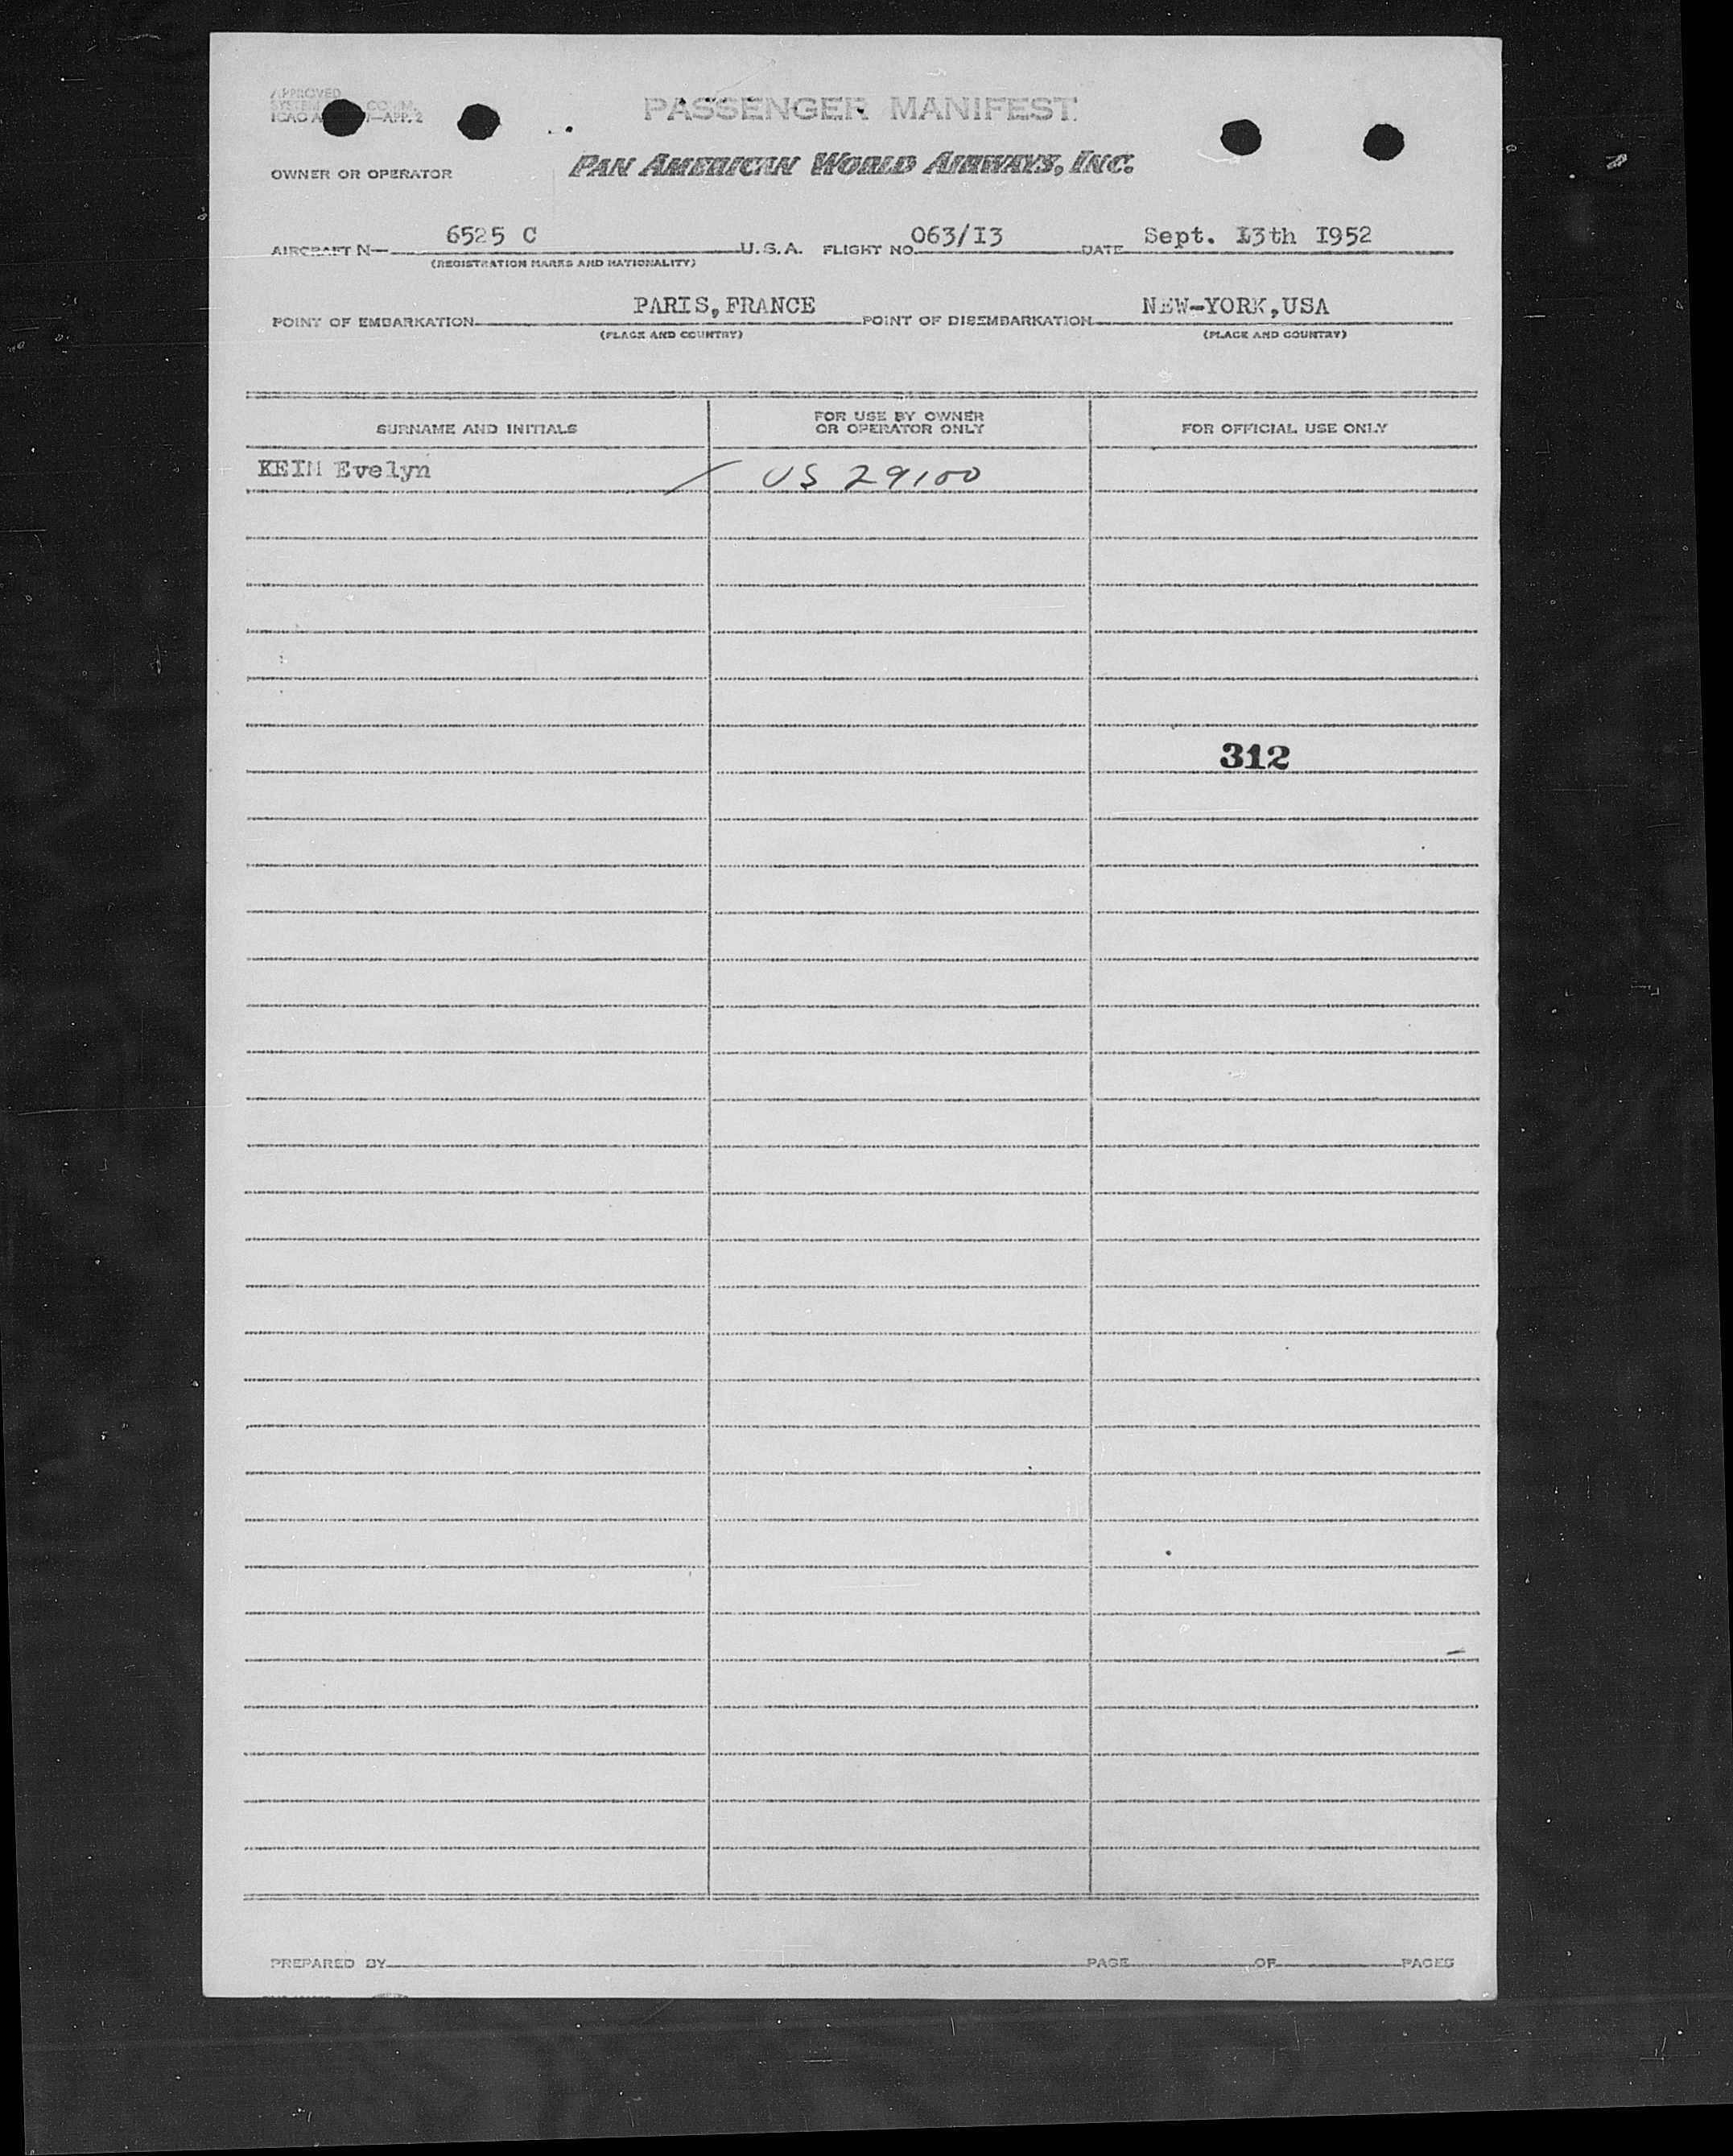 APPROVED
SYSTEM COMM.
ICAO A —APP. 2
PASSENGER MANIFEST
OWNER OR OPERATOR PAN AMERICAN WORLD AIRWAYS, INC.
AIRCRAFT N— 6525 C U.S.A. FLIGHT NO. 063/I3 DATE Sept. I3th I952
(REGISTRATION MARKS AND NATIONALITY)
POINT OF EMBARKATION PARIS,FRANCE POINT OF DISEMBARKATION NEW-YORK,USA
(PLACE AND COUNTRY) (PLACE AND COUNTRY)
SURNAME AND INITIALS FOR USE BY OWNER OR OPERATOR ONLY FOR OFFICIAL USE ONLY
Evelyn US 29100
312
PREPARED BY PAGE OF PAGES